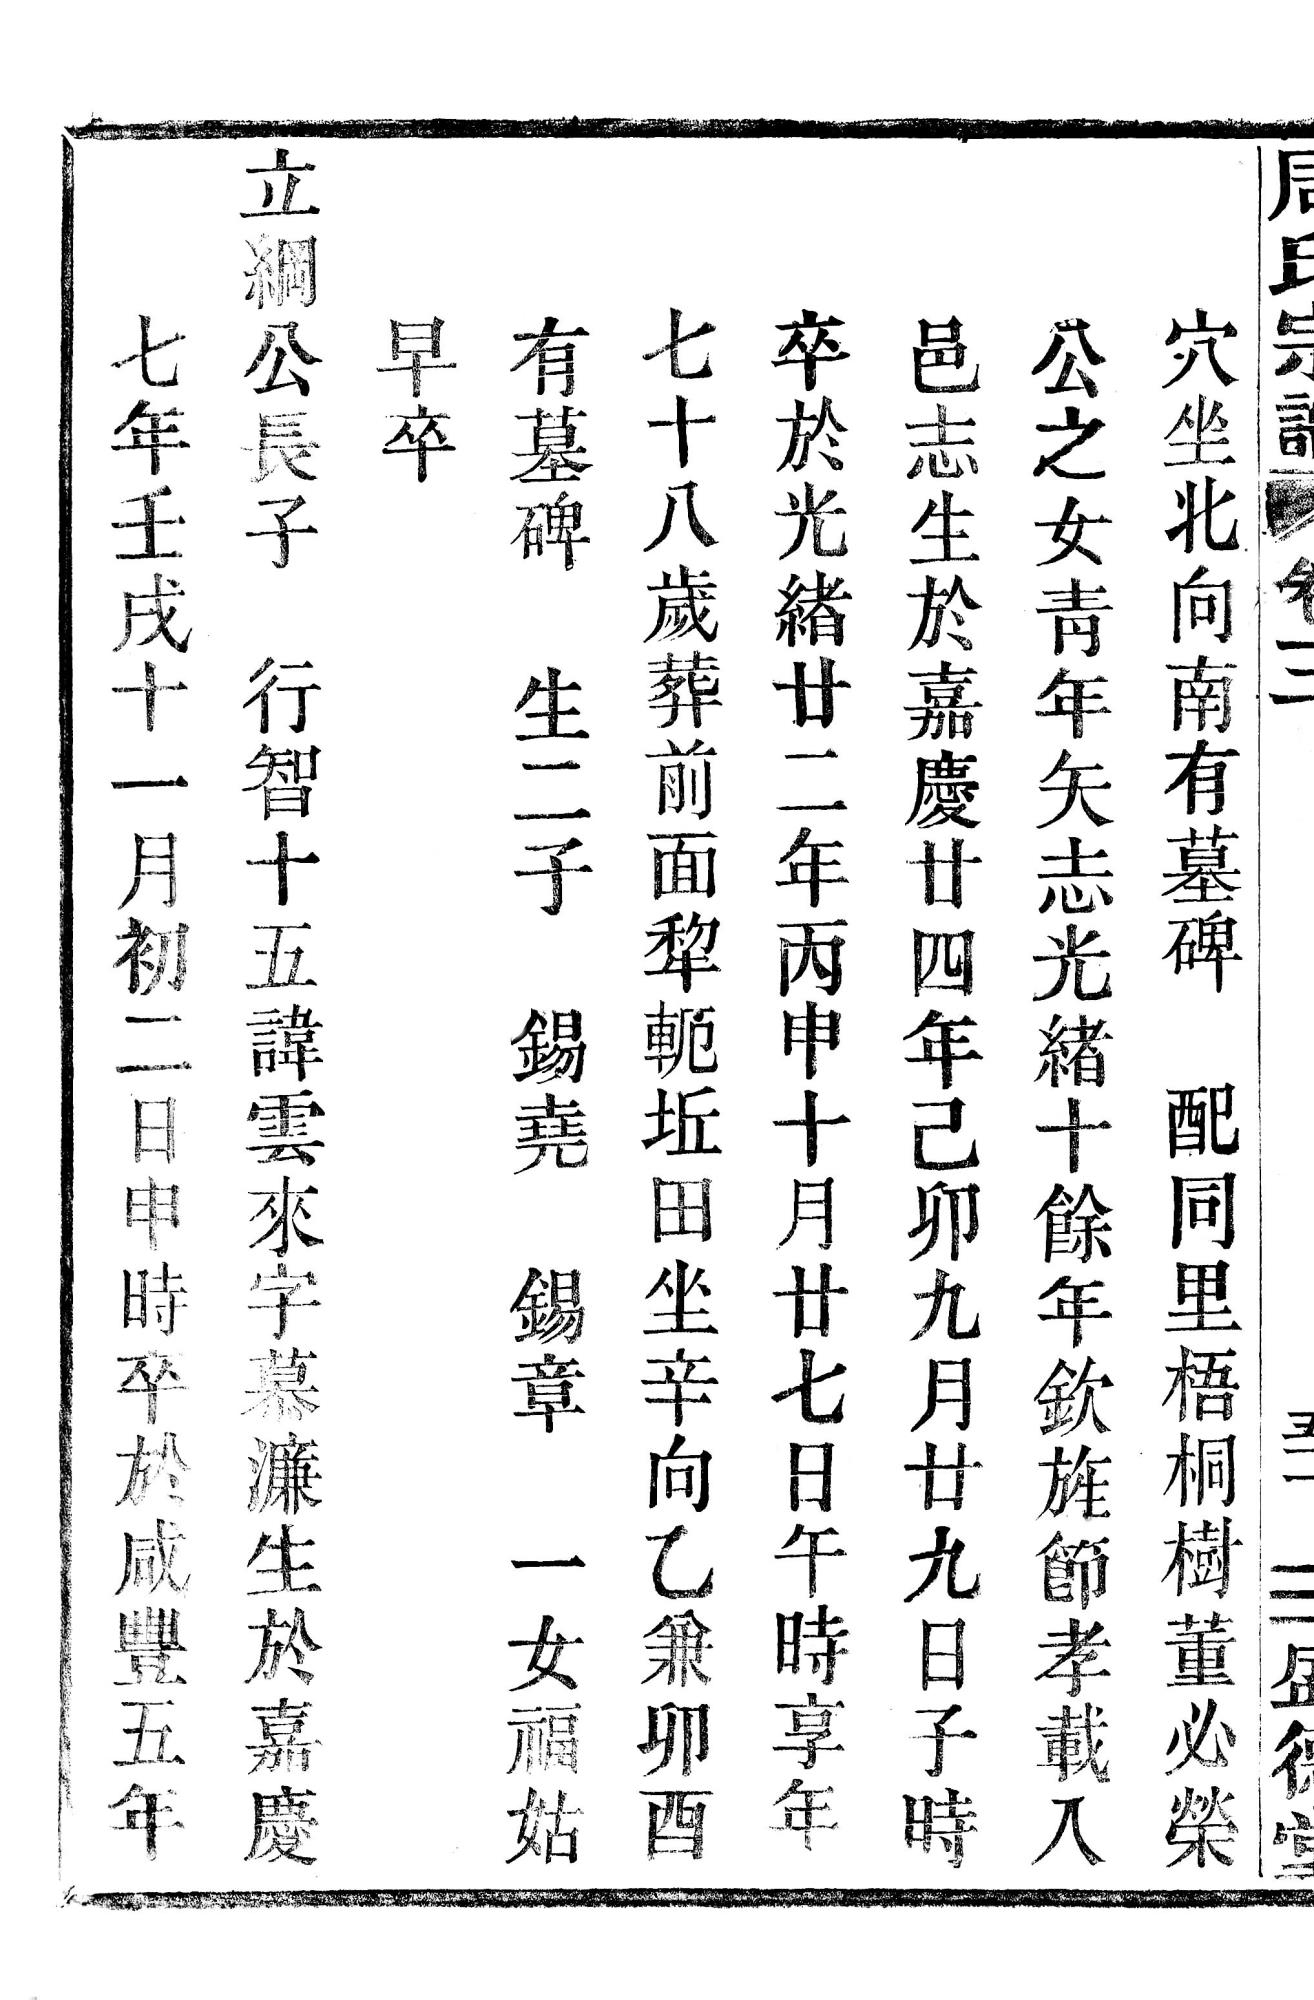 周氏宗譜 卷三 五十二 盛德堂
穴坐北向南有墓碑 配同里梧桐樹董必榮
公之女青年矢志光緒十餘年欽旌節孝載入
邑志生於嘉慶廿四年己卯九月廿九日子時
卒於光緒廿二年丙申十月廿七日午時享年
七十八歲葬前面犂軛坵田坐辛向乙兼卯酉
有墓碑 生二子 錫堯 錫章 一女福姑
早卒
立綱公長子 行智十五諱雲來字慕濂生於嘉慶
七年壬戌十一月初二日申時卒於咸豐五年